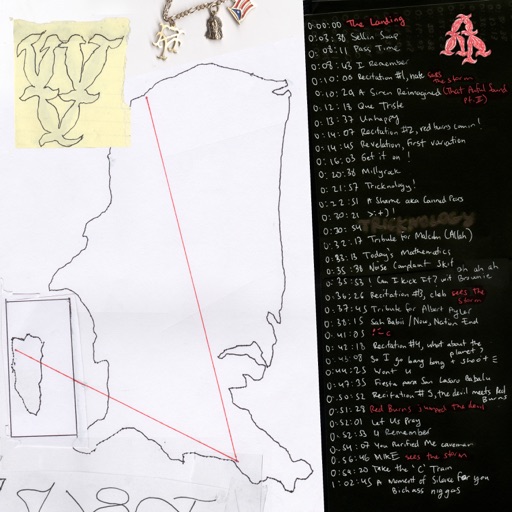 0:00:00 The Landing
0:03:30 Sellin Soap
0:08:11 Pass Time
0:08:43 I Remember
0:10:00 Recitation #1, nate sees the storm
0:10:29 A Siren Reimagined (That Awful Sound Pt. II)
0:12:18 Que Triste
0:13:37 Unhappy
0:14:07 Recitation #2, red burns comin!
0:14:45 Revelation, First variation
0:16:03 Get it on!
0:20:38 Millyrock
0:21:57 Tricknology!
0:22:51 A Shame aka Canned Pears
0:30:21 >:+)!
0:30:54 TRICKNOLOGY
0:32:17 Tribute for Malcolm (Allah)
0:33:13 Today's Mathematics
0:35:38 Noise Complaint Skit ah ah ah
0:35:53 ! Can I Kick It? wit Brownie
0:36:26 Recitation #3, cleb sees the storm
0:37:45 Tribute for Albert Ayler
0:38:15 Sah Babii / Now, Nation End
0:41:03
0:42:13 Recitation #4, what about the planet?
0:43:08 So I go bang bang + shoot
0:44:23 Want U
0:47:35 Fiesta para San Lazaro Babalu
0:50:52 Recitation #5, the devil meets Red Burns
0:51:28 Red Burns, the devil
0:52:01 Let Us Pray
0:52:53 U Remember
0:54:07 You Purified Me caveman
0:56:46 MIKE sees the storm
0:59:20 Take the "C" Train
1:02:45 A Moment of Silence For you Bichass niggas